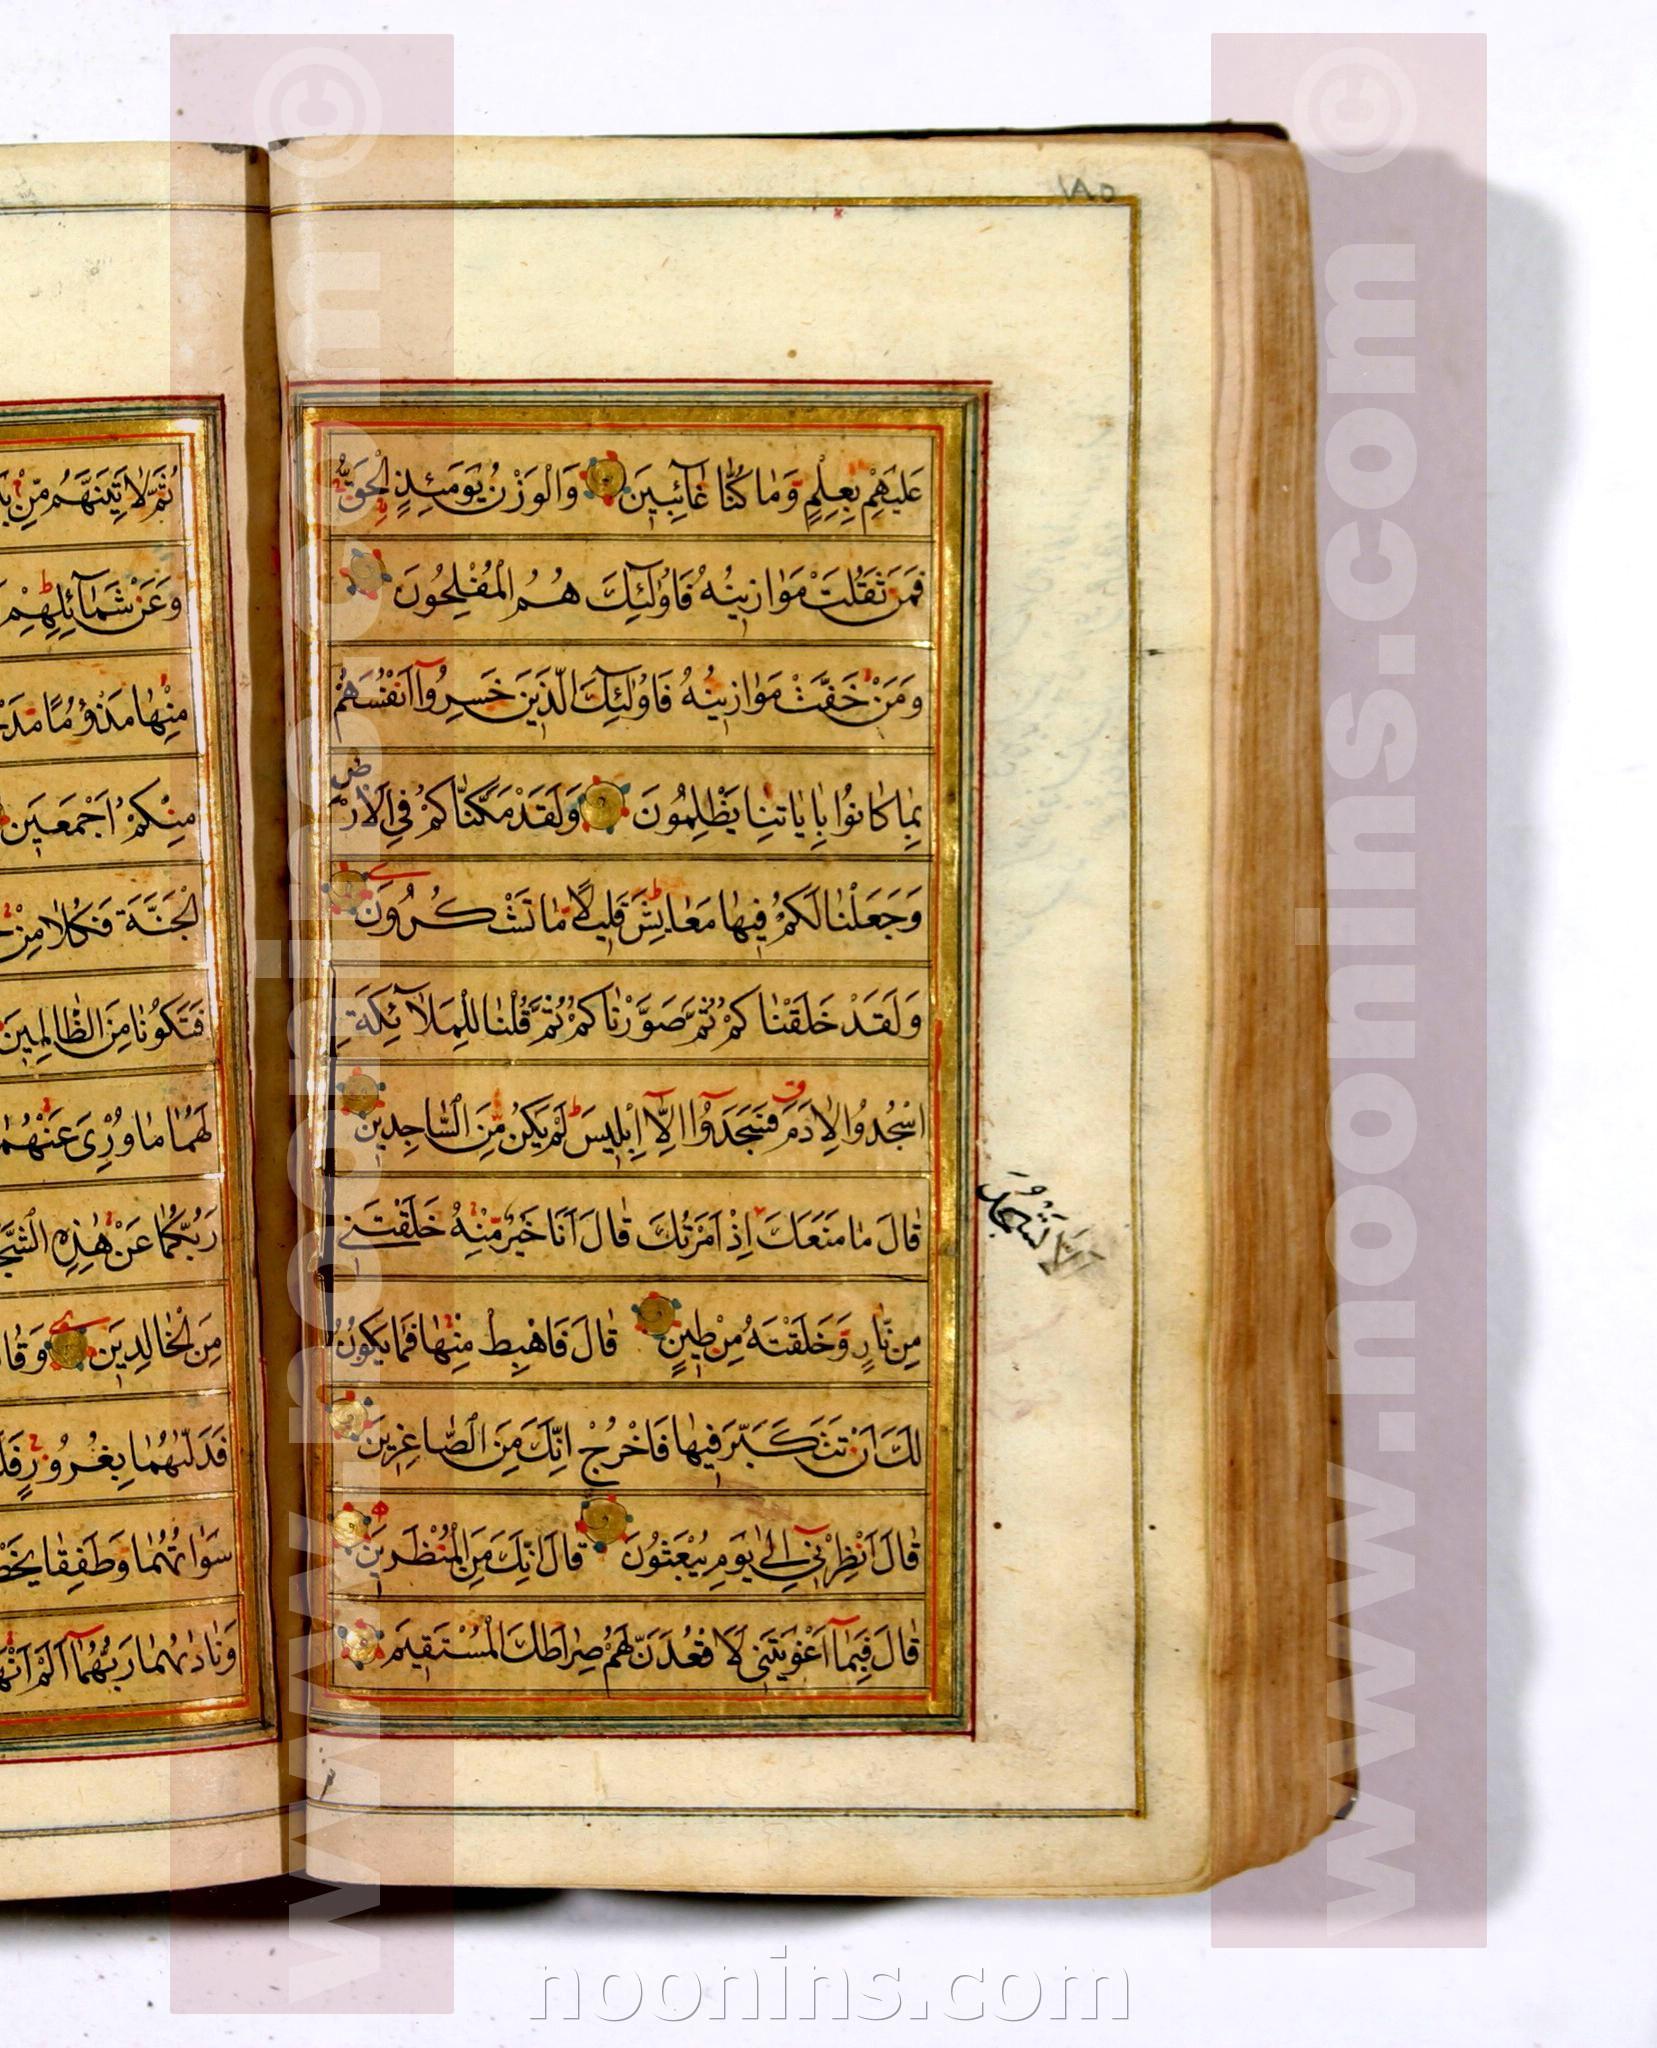 ١٨٥
عَلَيْهِمْ بِعِلْمٍ وَمَا كُنَّا غَائِبِينَ وَالْوَزْنُ يَوْمَئِذٍ الْحَقُّ
فَمَنْ ثَقُلَتْ مَوَازِينُهُ فَأُولَٰئِكَ هُمُ الْمُفْلِحُونَ
وَمَنْ خَفَّتْ مَوَازِينُهُ فَأُولَٰئِكَ الَّذِينَ خَسِرُوا أَنْفُسَهُمْ
بِمَا كَانُوا بِآيَاتِنَا يَظْلِمُونَ وَلَقَدْ مَكَّنَّاكُمْ فِي الْأَرْضِ
وَجَعَلْنَا لَكُمْ فِيهَا مَعَايِشَ قَلِيلًا مَا تَشْكُرُونَ
وَلَقَدْ خَلَقْنَاكُمْ ثُمَّ صَوَّرْنَاكُمْ ثُمَّ قُلْنَا لِلْمَلَائِكَةِ
اسْجُدُوا لِآدَمَ فَسَجَدُوا إِلَّا إِبْلِيسَ لَمْ يَكُنْ مِنَ السَّاجِدِينَ
قَالَ مَا مَنَعَكَ إِذْ أَمَرْتُكَ قَالَ أَنَا خَيْرٌ مِنْهُ خَلَقْتَنِي
أَلَّا تَسْجُدَ
مِنْ نَارٍ وَخَلَقْتَهُ مِنْ طِينٍ قَالَ فَاهْبِطْ مِنْهَا فَمَا يَكُونُ
لَكَ أَنْ تَتَكَبَّرَ فِيهَا فَاخْرُجْ إِنَّكَ مِنَ الصَّاغِرِينَ
قَالَ أَنْظِرْنِي إِلَىٰ يَوْمِ يُبْعَثُونَ قَالَ إِنَّكَ مِنَ الْمُنْظَرِينَ
قَالَ فَبِمَا أَغْوَيْتَنِي لَأَقْعُدَنَّ لَهُمْ صِرَاطَكَ الْمُسْتَقِيمَ
ثُمَّ لَآتِيَنَّهُمْ مِنْ
وَعَنْ شَمَائِلِهِمْ
مِنْهَا مَذْؤُمًا
مِنْكُمْ أَجْمَعِينَ
الْجَنَّةَ فَكُلَا مِنْ
فَتَكُونَا مِنَ الظَّالِمِينَ
لَهُمَا مَا وُرِيَ عَنْهُمَا
رَبُّكُمَا عَنْ هَٰذِهِ
مِنَ الْخَالِدِينَ
فَدَلَّاهُمَا بِغُرُورٍ
سَوْآتُهُمَا وَطَفِقَا
وَنَادَاهُمَا رَبُّهُمَا أَلَمْ
www.noonins.com ©
www.noonins.com ©
noonins.com